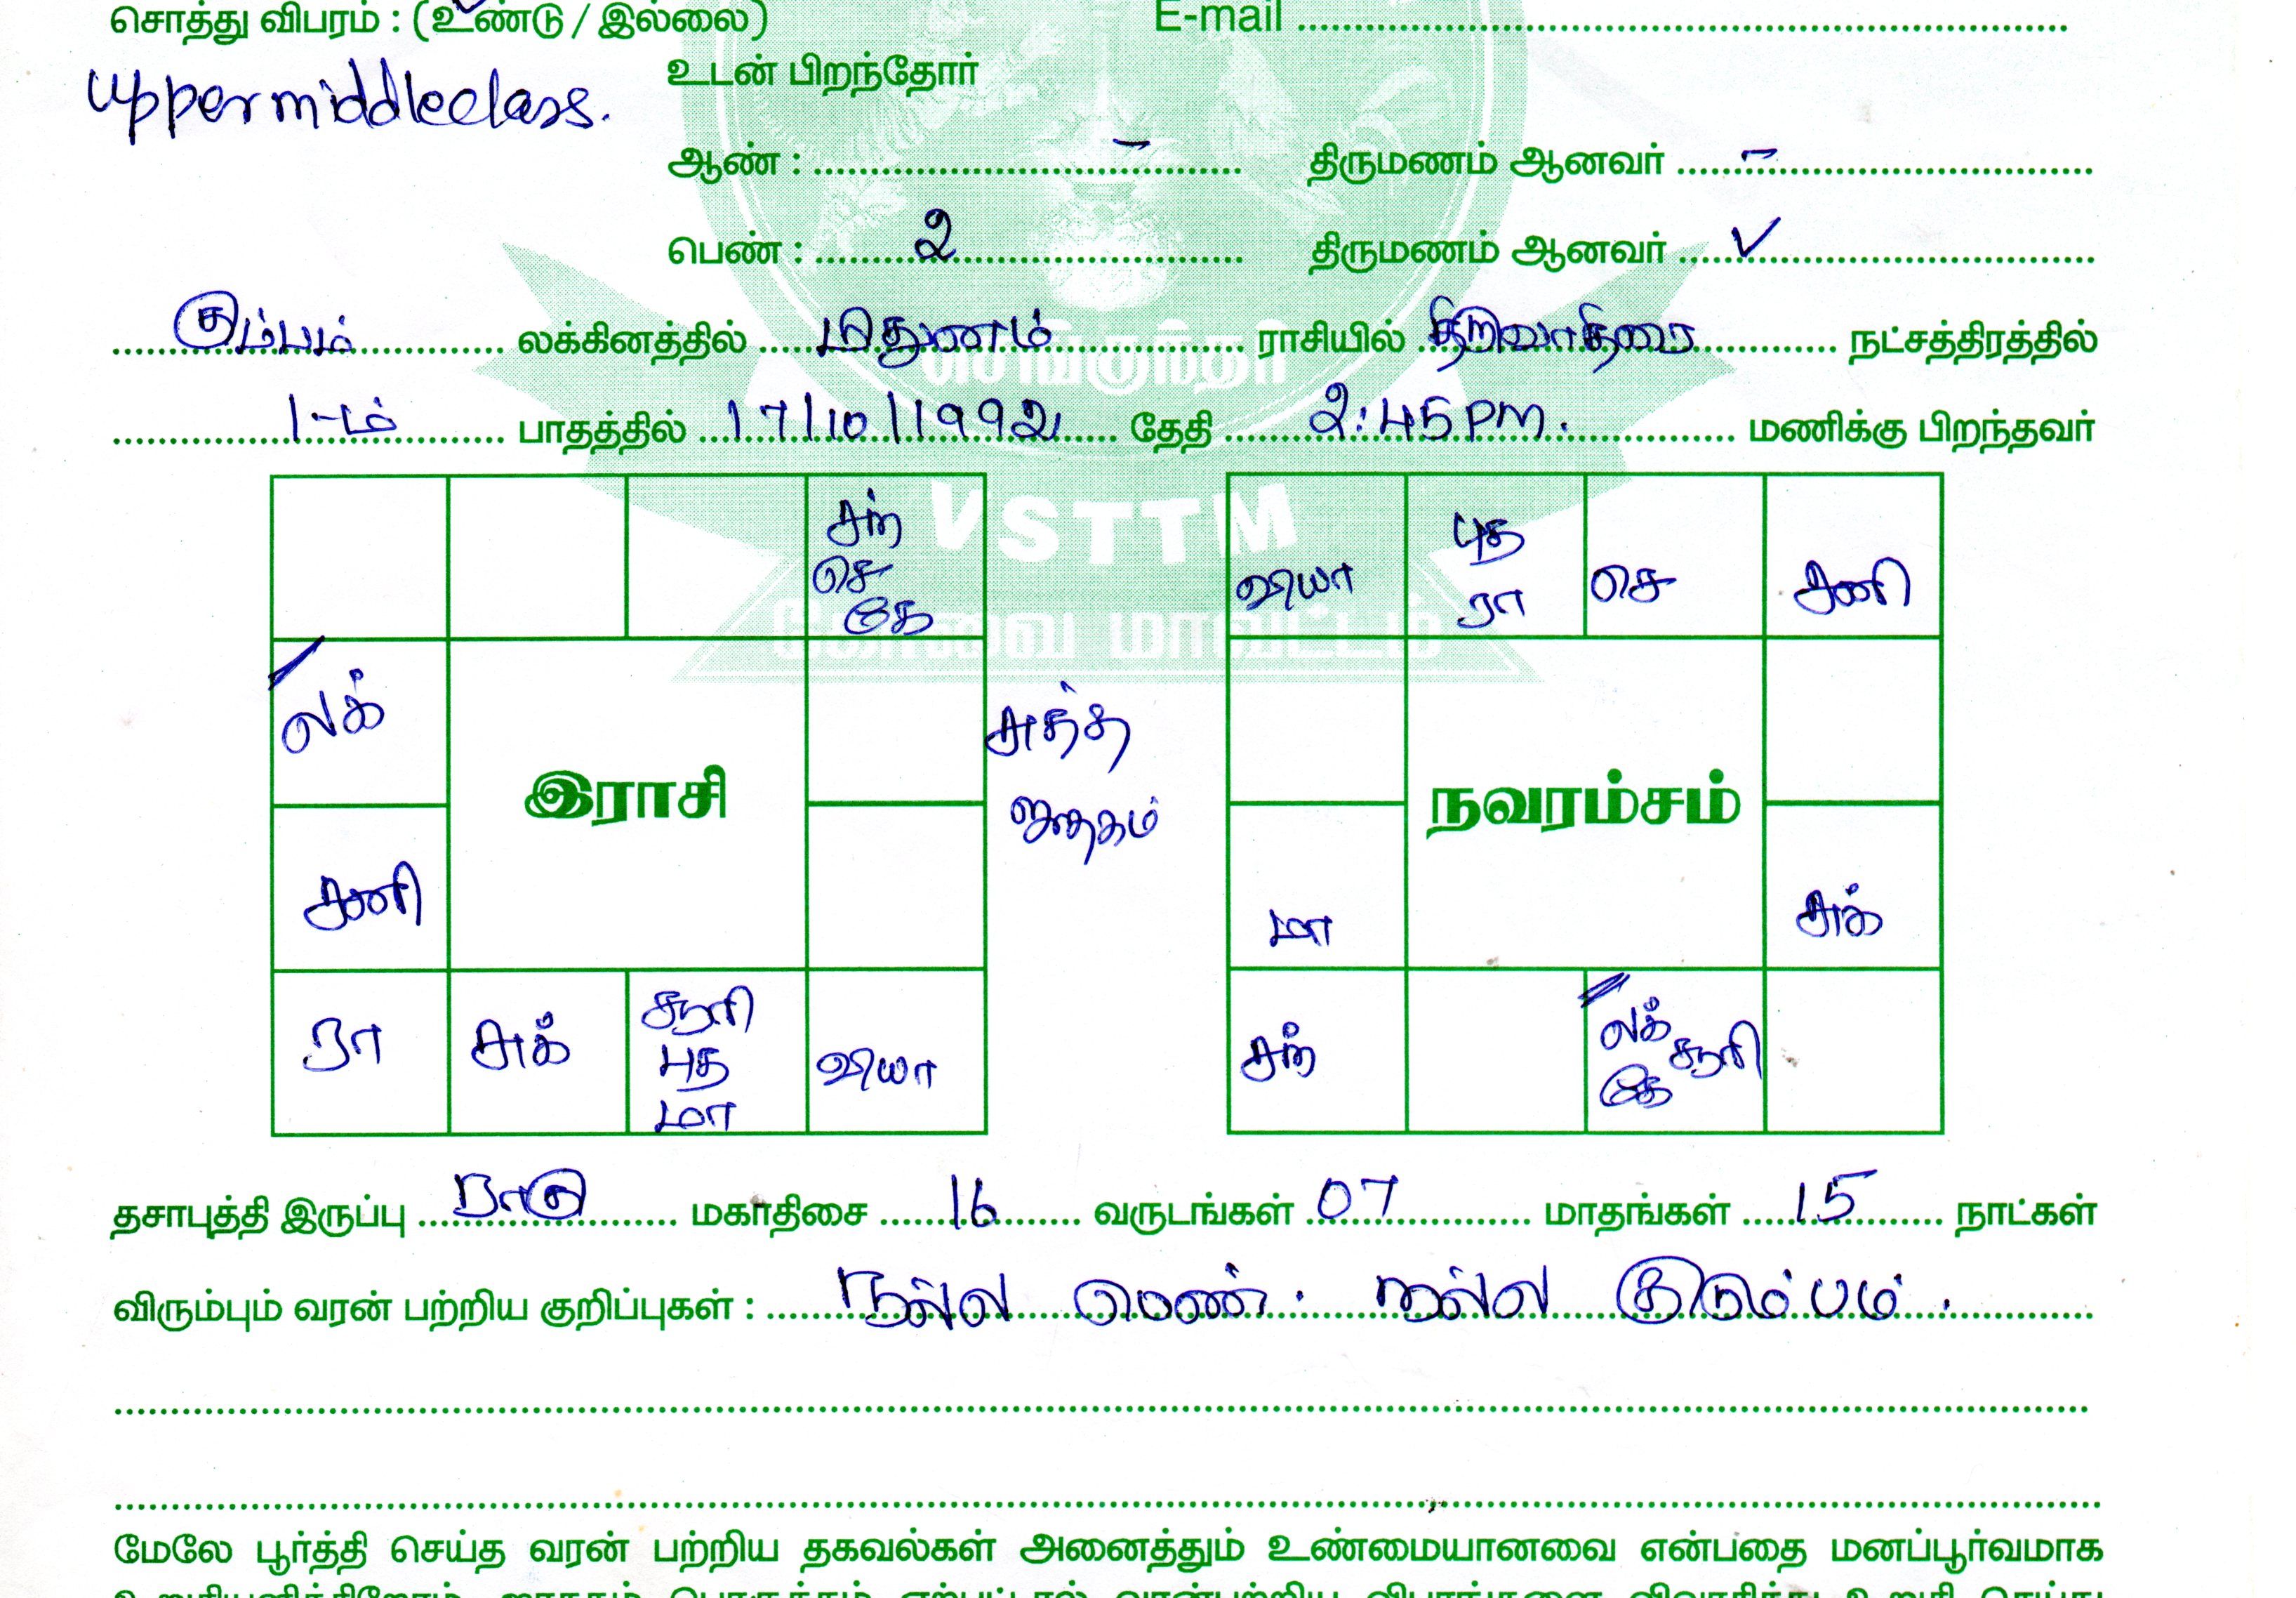 சொத்து விபரம் : (உண்டு / இல்லை) E-mail
uppermiddleclass.
உடன் பிறந்தோர்
ஆண் : – திருமணம் ஆனவர் –
பெண் : 2 திருமணம் ஆனவர் ✓
கும்பம் லக்கினத்தில் மிதுனம் ராசியில் திருவாதிரை நட்சத்திரத்தில்
செங்குந்தர்
1-ம் பாதத்தில் 17/10/1992 தேதி 2:45 PM. மணிக்கு பிறந்தவர்
VSTTM
கோவை மாவட்டம்
சந்
செ
கே
லக்
சனி
ரா சுக் சூரி வியா
புத
மா
இராசி
சுத்த
ஜாதகம்
வியா புத செ சனி
ரா
மா சுக்
சந் லக் சூரி
கே
நவரம்சம்
தசாபுத்தி இருப்பு ராகு மகாதிசை 16 வருடங்கள் 07 மாதங்கள் 15 நாட்கள்
விரும்பும் வரன் பற்றிய குறிப்புகள் : நல்ல பெண். நல்ல குடும்பம்.
மேலே பூர்த்தி செய்த வரன் பற்றிய தகவல்கள் அனைத்தும் உண்மையானவை என்பதை மனப்பூர்வமாக